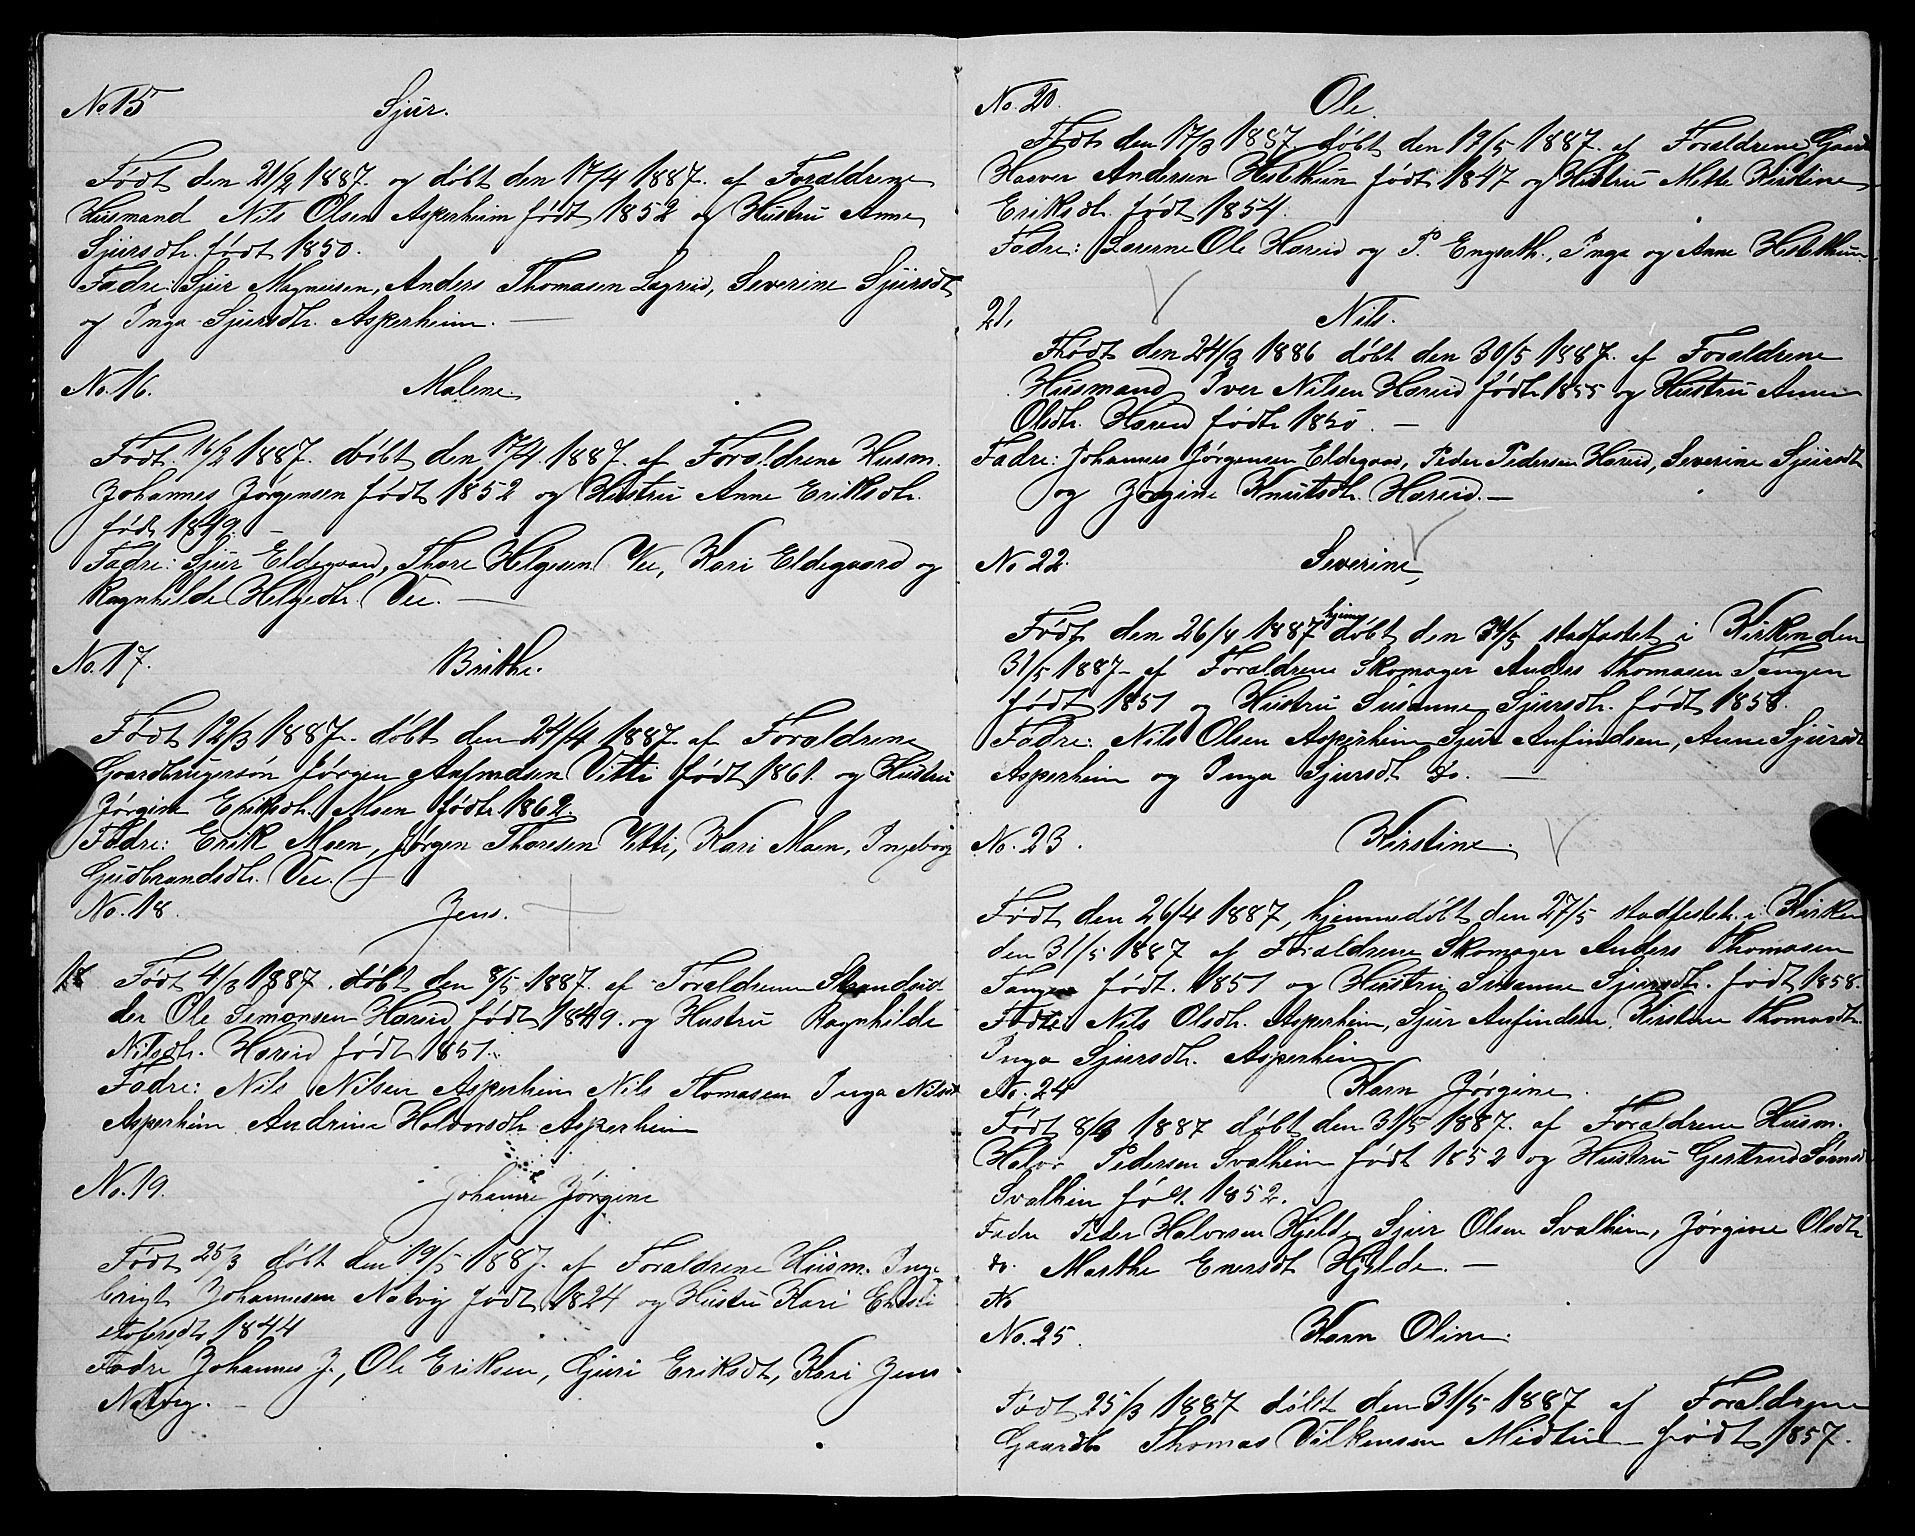 No. 15 Sjur.
Født den 21/2 1887. og døbt den 17/4 1887. af Forældrene
Husmand Nils Olsen Asperheim født 1852 og Hustru Anne
Sjursdtr. født 1850.
Fadre: Sjur Magnusen, Anders Thomasen Lægreid, Severine Sjursdt
og Inga Sjursdtr. Asperheim. —
No. 16. Malene
Født 16/2 1887. døbt den 17/4. 1887. af Forældrene Husm.
Johannes Jørgensen født 1852 og Hustru Anne Eriksdtr.
født 1849. —
Fadre: Sjur Eldegaard, Thore Helgesen Vee, Kari Eldegaard og
Ragnhilde Helgedtr. Vee. —
No. 17. Brithe.
Født 12/3 1887. døbt den 24/4 1887. af Forældrene
Gaardbrugersøn Jørgen Anfindsen Vitti født 1861. og Hustru
Jørgine Eriksdtr. Moen født 1862.
Fadre: Erik Moen, Jørgen Thoresen Vitti, Kari Moen, Ingeborg
Gudbrandsdtr. Vee. —
No. 18. Jens.
18 Født 4/3 1887. døbt den 8/5. 1887. af Forældrene Strandsid
der Ole Simonsen Hæreid født 1849. og Hustru Ragnhilde
Nilsdtr. Hæreid født 1851.
Fadre: Nils Nilsen Asperheim Nils Thomasen Inga Nilsdt
Asperheim Andrine Halvorsdtr Asperheim
No. 19. Johanne Jørgine
Født 25/3 døbt den 19/5 1887. af Forældrene Husm. Inge
brigt Johannesen Natvig født 1824 og Hustru Kari Christi
stofersdtr 1844
Fadre Johannes J., Ole Eriksen, Guri Eriksdt, Kari Jens
Natvig. —
No. 20. Ole.
Født den 17/3 1887. døbt den 19/5 1887. af Forældrene Gaard
Haaver Andersen Hulthun født 1847 og Hustru Mette Kirstine
Eriksdtr. født 1854.
Fadre: Lærerne Ole Hæreid og P. Engesæth., Inga og Anne
21. Nils.
Født den 24/3 1886 døbt den 30/5 1887. af Forældrene
Husmand Iver Nilsen Hæreid født 1855 og Hustru Anne
Olsdtr. Hæreid født 1850. —
Fadre: Johannes Jørgensen Eldegaard, Peder Pedersen Hæreid, Severine Sjursdt
og Jørgine Knutsdtr. Hæreid. —
No 22. Severine
Født den 26/4 1887 hjemme døbt den 27/5 stadfæstet i Kirken den
31/5 1887 — af Forældrene Skomager Anders Thomasen Tangen
født 1851 og Hustru Susanne Sjursdtr. født 1858.
Fadre: Nils Olsen Asperheim Sjur Anfindsen, Anne Sjursdt
Asperheim og Inga Sjursdt do. —
No. 23. Kirstine.
Født den 26/4 1887, hjemmedøbt den 27/5 stadfestet i Kirken
den 31/5 1887 af Forældrene Skomager Anders Thomasen
Tangen født. 1851 og Hustru Susanne Sjursdtr. født 1858.
Fadre: Nils Olsdtr. Asperheim, Sjur Anfindsen, Kirstine Thomasdtr.
Inga Sjursdtr. Asperheim
No. 24 Karn Jørgine.
Født 8/4 1887 døbt den 31/5 1887. af Forældrene Husm.
Halvor Pedersen Svalheim født 1852 og Hustru Gjertrud
Svalhein født. 1852.
Fadre Peder Halvorsen Hjelde Sjur Olsen Svalheim, Jørgine Olsdt
do. Marthe Enersdt Hjelde. —
No
No. 25. Karn Oline.
Født 25/3 1887 døbt den 31/5 1887 af Forældrene
Gaardb. Thomas Vilkensen Midtun født 1857.